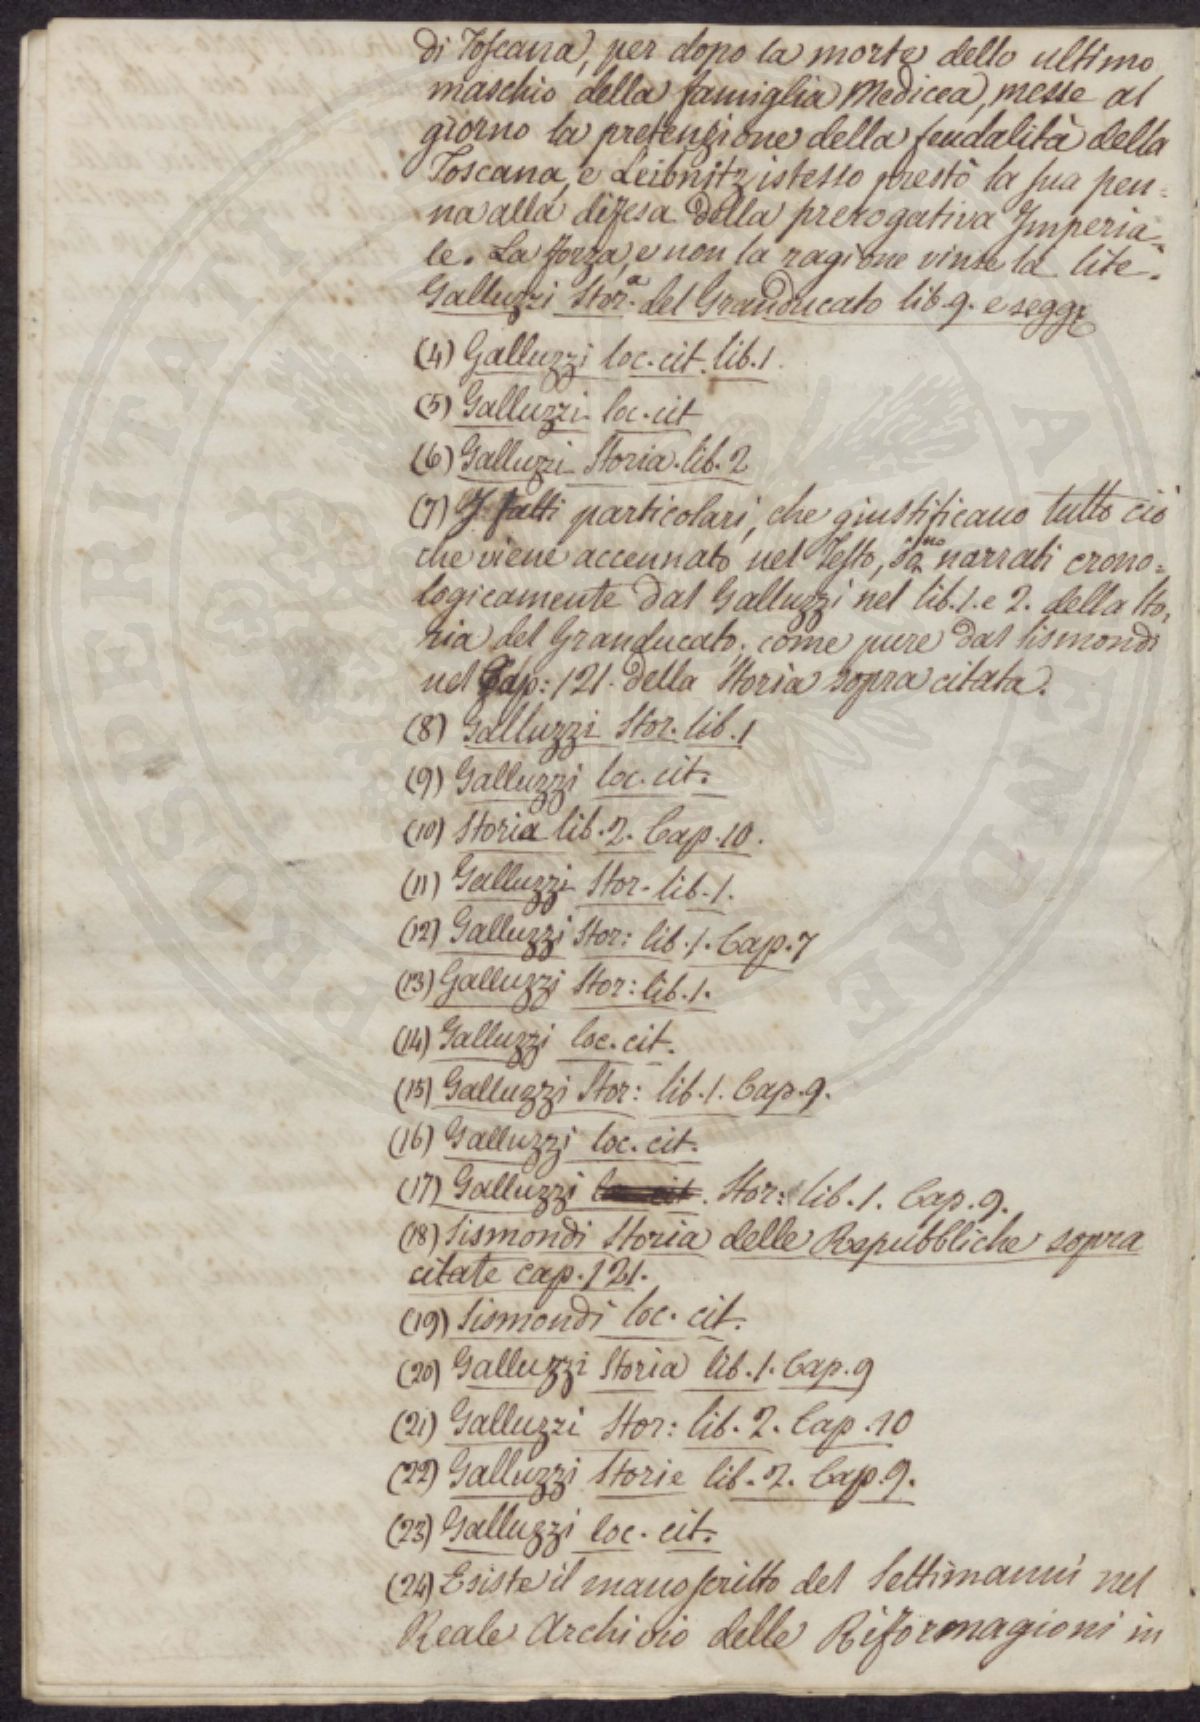 di Toscana, per dopo la morte dello ultimo
maschio della famiglia Medicea, messe al
giorno la pretenzione della feudalità della
Toscana, e Leibnitz istesso prestò la sua pen=
na alla difesa della prerogativa Imperia=
le. La forza, e non la ragione vinse la lite.
Galluzzi Stor.ª del Granducato lib. 9. e segg.
(4) Galluzzi loc. cit. lib. 1.
(5) Galluzzi loc. cit
(6) Galluzzi Storia. lib. 2
(7) I fatti particolari, che giustificano tutto ciò
che viene accennato nel Testo, sono narrati crono=
logicamente dal Galluzzi nel lib. 1. e 2. della Sto,
ria del Granducato, come pure dal Sismondi
nel Cap: 121. della Storia sopra citata.
(8) Galluzzi Stor. lib. 1
(9) Galluzzi loc. cit.
(10) Storia lib. 2. Cap. 10.
(11) Galluzzi Stor. lib. 1.
(12) Galluzzi Stor: lib. 1. Cap. 7
(13) Galluzzi Stor: lib. 1.
(14) Galluzzi loc. cit.
(15) Galluzzi Stor: lib. 1. Cap. 9.
(16) Galluzzi loc. cit.
(17) Galluzzi loc. cit. Stor: lib. 1. Cap. 9.
(18) Sismondi Storia delle Repubbliche sopra
citate cap. 121.
(19) Sismondi loc. cit.
(20) Galluzzi Storia lib. 1. Cap. 9
(21) Galluzzi Stor: lib. 2. Cap. 10
(22) Galluzzi Storie lib. 2. Cap. 9.
(23) Galluzzi loc. cit.
(24) Esiste il manoscritto del Settimanni nel
Reale Archivio delle Riformagioni in
PROSPERITATI AVENDAE